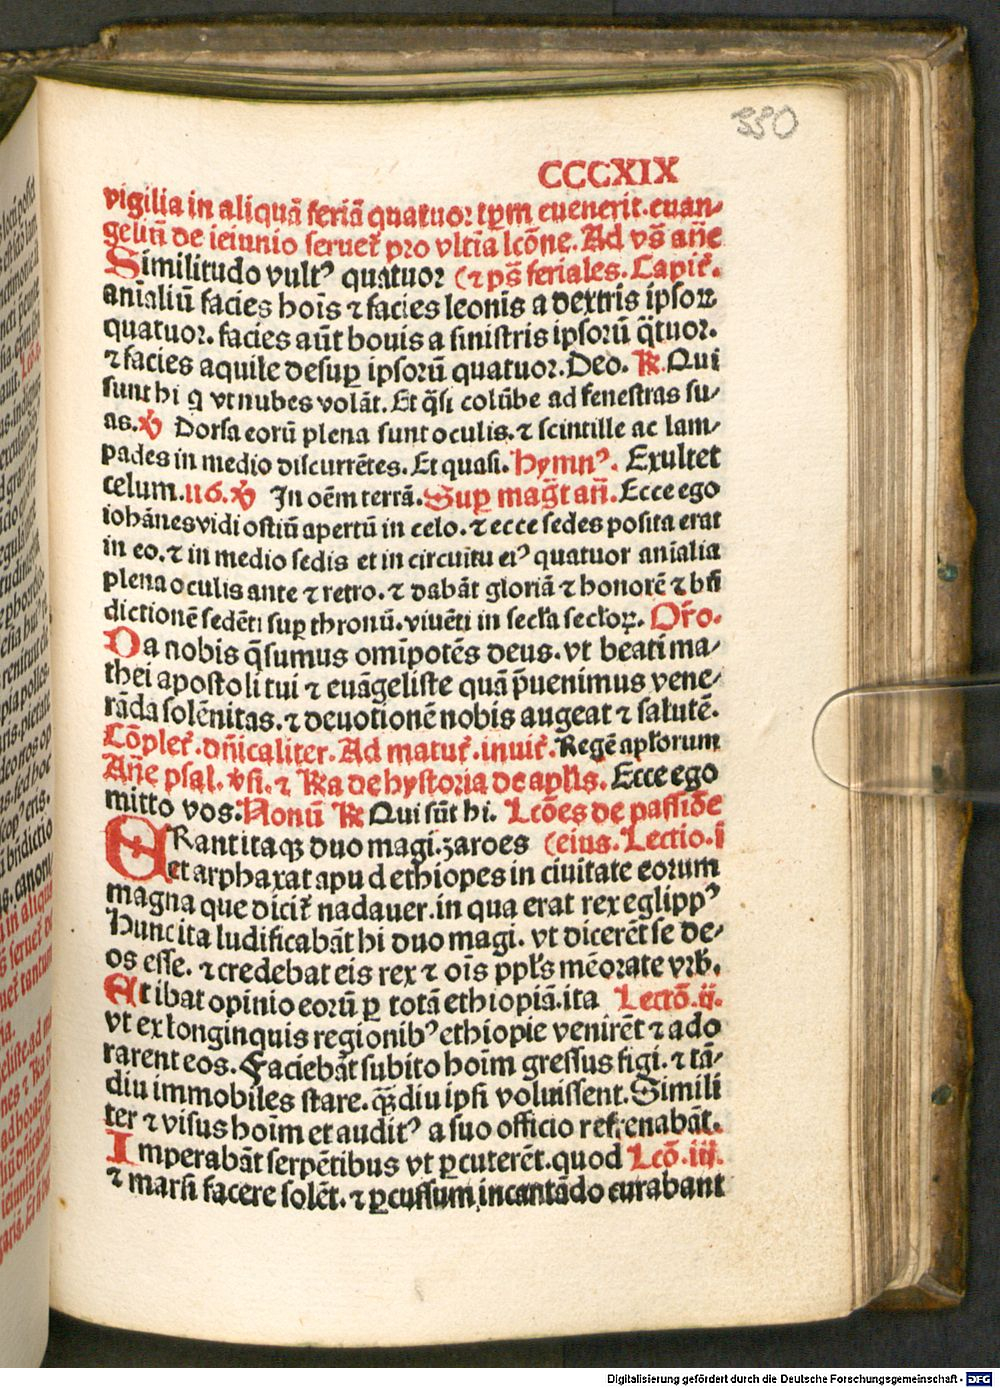 330
CCCXIX
vigilia in aliquā feriā quatuor tꝑm euenerit. euan⸗
geliū de ieiunio seruet᷑ pro vltīa lcōne. Ad vs̄ añe
Similitudo vultꝰ quatuor (⁊ ps̄ feriales. Capit᷑.
anīaliū facies hoīs ⁊ facies leonīs a dextris ipsoꝝ
quatuor. facies aūt bouis a sinistris ipsorū q̄tuor.
⁊ facies aquile desuꝑ ipsorū quatuor. Deo. ℟. Qui
sunt hi q vt nubes volāt. Et q̄si colūbe ad fenestras su⸗
as. ℣ Dorsa eorū plena sunt oculis. ⁊ scintille ac lam⸗
pades in medio discurrētes. Et quasi. Hymnꝰ. Exultet
celum. 116. ℣ In oēm terrā. Suꝑ mag̃t añ. Ecce ego
iohānes vidi ostiū apertū in celo. ⁊ ecce sedes posita erat
in eo. ⁊ in medio sedis et in circuitu eiꝰ quatuor anīalia
plena oculis ante ⁊ retro. ⁊ dabāt gloriā ⁊ honorē ⁊ bn̄
dictionē sedēti suꝑ thronū. viuēti in secĺa secĺoꝝ. Or̄o.
Da nobis q̄sumus omīpotēs deus. vt beati ma⸗
thei apostoli tui ⁊ euāgeliste quā p̄uenimus vene⸗
rāda solēnitas. ⁊ deuotionē nobis augeat ⁊ salutē.
Cōplet᷑. dn̄icaliter. Ad matut᷑. inuit᷑. Regē apĺorum
Añe psal. ℣si. ⁊ ℟a de hystoria de aplīs. Ecce ego
mitto vos. Nonū ℟ Qui sūt hi. Lcōes de passiōe
ERant itaqꝫ duo magi. zaroes (eius. Lectio. i
et arphaxat apud ethiopes in ciuitate eorum
magna que dicit᷑ nadauer. in qua erat rex eglippꝰ
Hunc ita ludificabāt hi duo magi. vt dicerēt se de⸗
os esse. ⁊ credebat eis rex ⁊ oīs ppĺs mēorate vrb̄.
At ibat opinio eorū ꝑ totā ethiopiā. ita Lectō. ij.
vt ex longinquis regionibꝰ ethiopie venirēt ⁊ ado
rarent eos. Faciebāt subito hoīm gressus figi. ⁊ tā⸗
diu immobiles stare. qꝫ̄diu ipsi voluissent. Simili
ter ⁊ visus hoīm et auditꝰ a suo officio refrenabāt.
Imperabāt serpētibus vt ꝑcuterēt. quod Lcō. iij.
⁊ marsi facere solēt. ⁊ ꝑcussum incantādo curabant
Digitalisierung gefördert durch die Deutsche Forschungsgemeinschaft - DFG